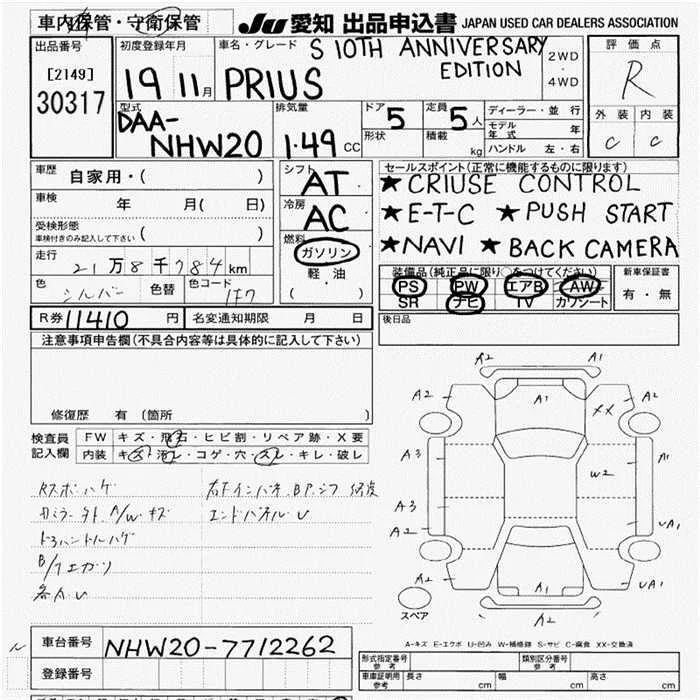 車内保管・守衛保管 JU 愛知 出品申込書 JAPAN USED CAR DEALERS ASSOCIATION
出品番号 初度登録年月 車名・グレード S 10TH ANNIVERSARY EDITION 2WD・4WD 評価点
[2149] 19 11月 PRIUS R
30317
型式 排気量 ドア 5 定員 5人 ディーラー・並行 外装 内装
DAA-NHW20 1.49CC 形状 積載 kg モデル年式 年 C C
ハンドル 左・右
車歴 自家用・( ) シフト AT セールスポイント(正常に機能するものに限ります)
車検 年 月( 日) 冷房 AC ★CRIUSE CONTROL
受検形態 ( ) ★E-T-C ★PUSH START
車検付きのみ記入して下さい 燃料 ガソリン ★NAVI ★BACK CAMERA
走行 21万8千784km 軽・油
色 シルバー 色替 色コード ( ) 装備品(純正品に限り○をつけてください) 新車保証書
PS PW エアB AW 有・無
SR ナビ TV カワシート
R券 11410 円 名変通知期限 月 日 後日品
注意事項申告欄(不具合内容等は具体的に記入して下さい)
修復歴 有(箇所 )
検査員記入欄 FW キズ・飛石・ヒビ割・リペア跡・X要
内装 キズ・汚レ・コゲ・穴・スレ・キレ・破レ
A2 A1
A2 A1 XX A2
A3 W2 A1
A3 UA1
A2
A2 A1 UA1
A2
スペア
A-キズ E-エクボ U-凹み W-補修跡 S-サビ C-腐食 XX-交換済
車台番号 NHW20-7712262
登録番号
形式指定番号 参考 類別区分番号 参考
車庫証明用 参考 長さ cm 幅 cm 高さ cm